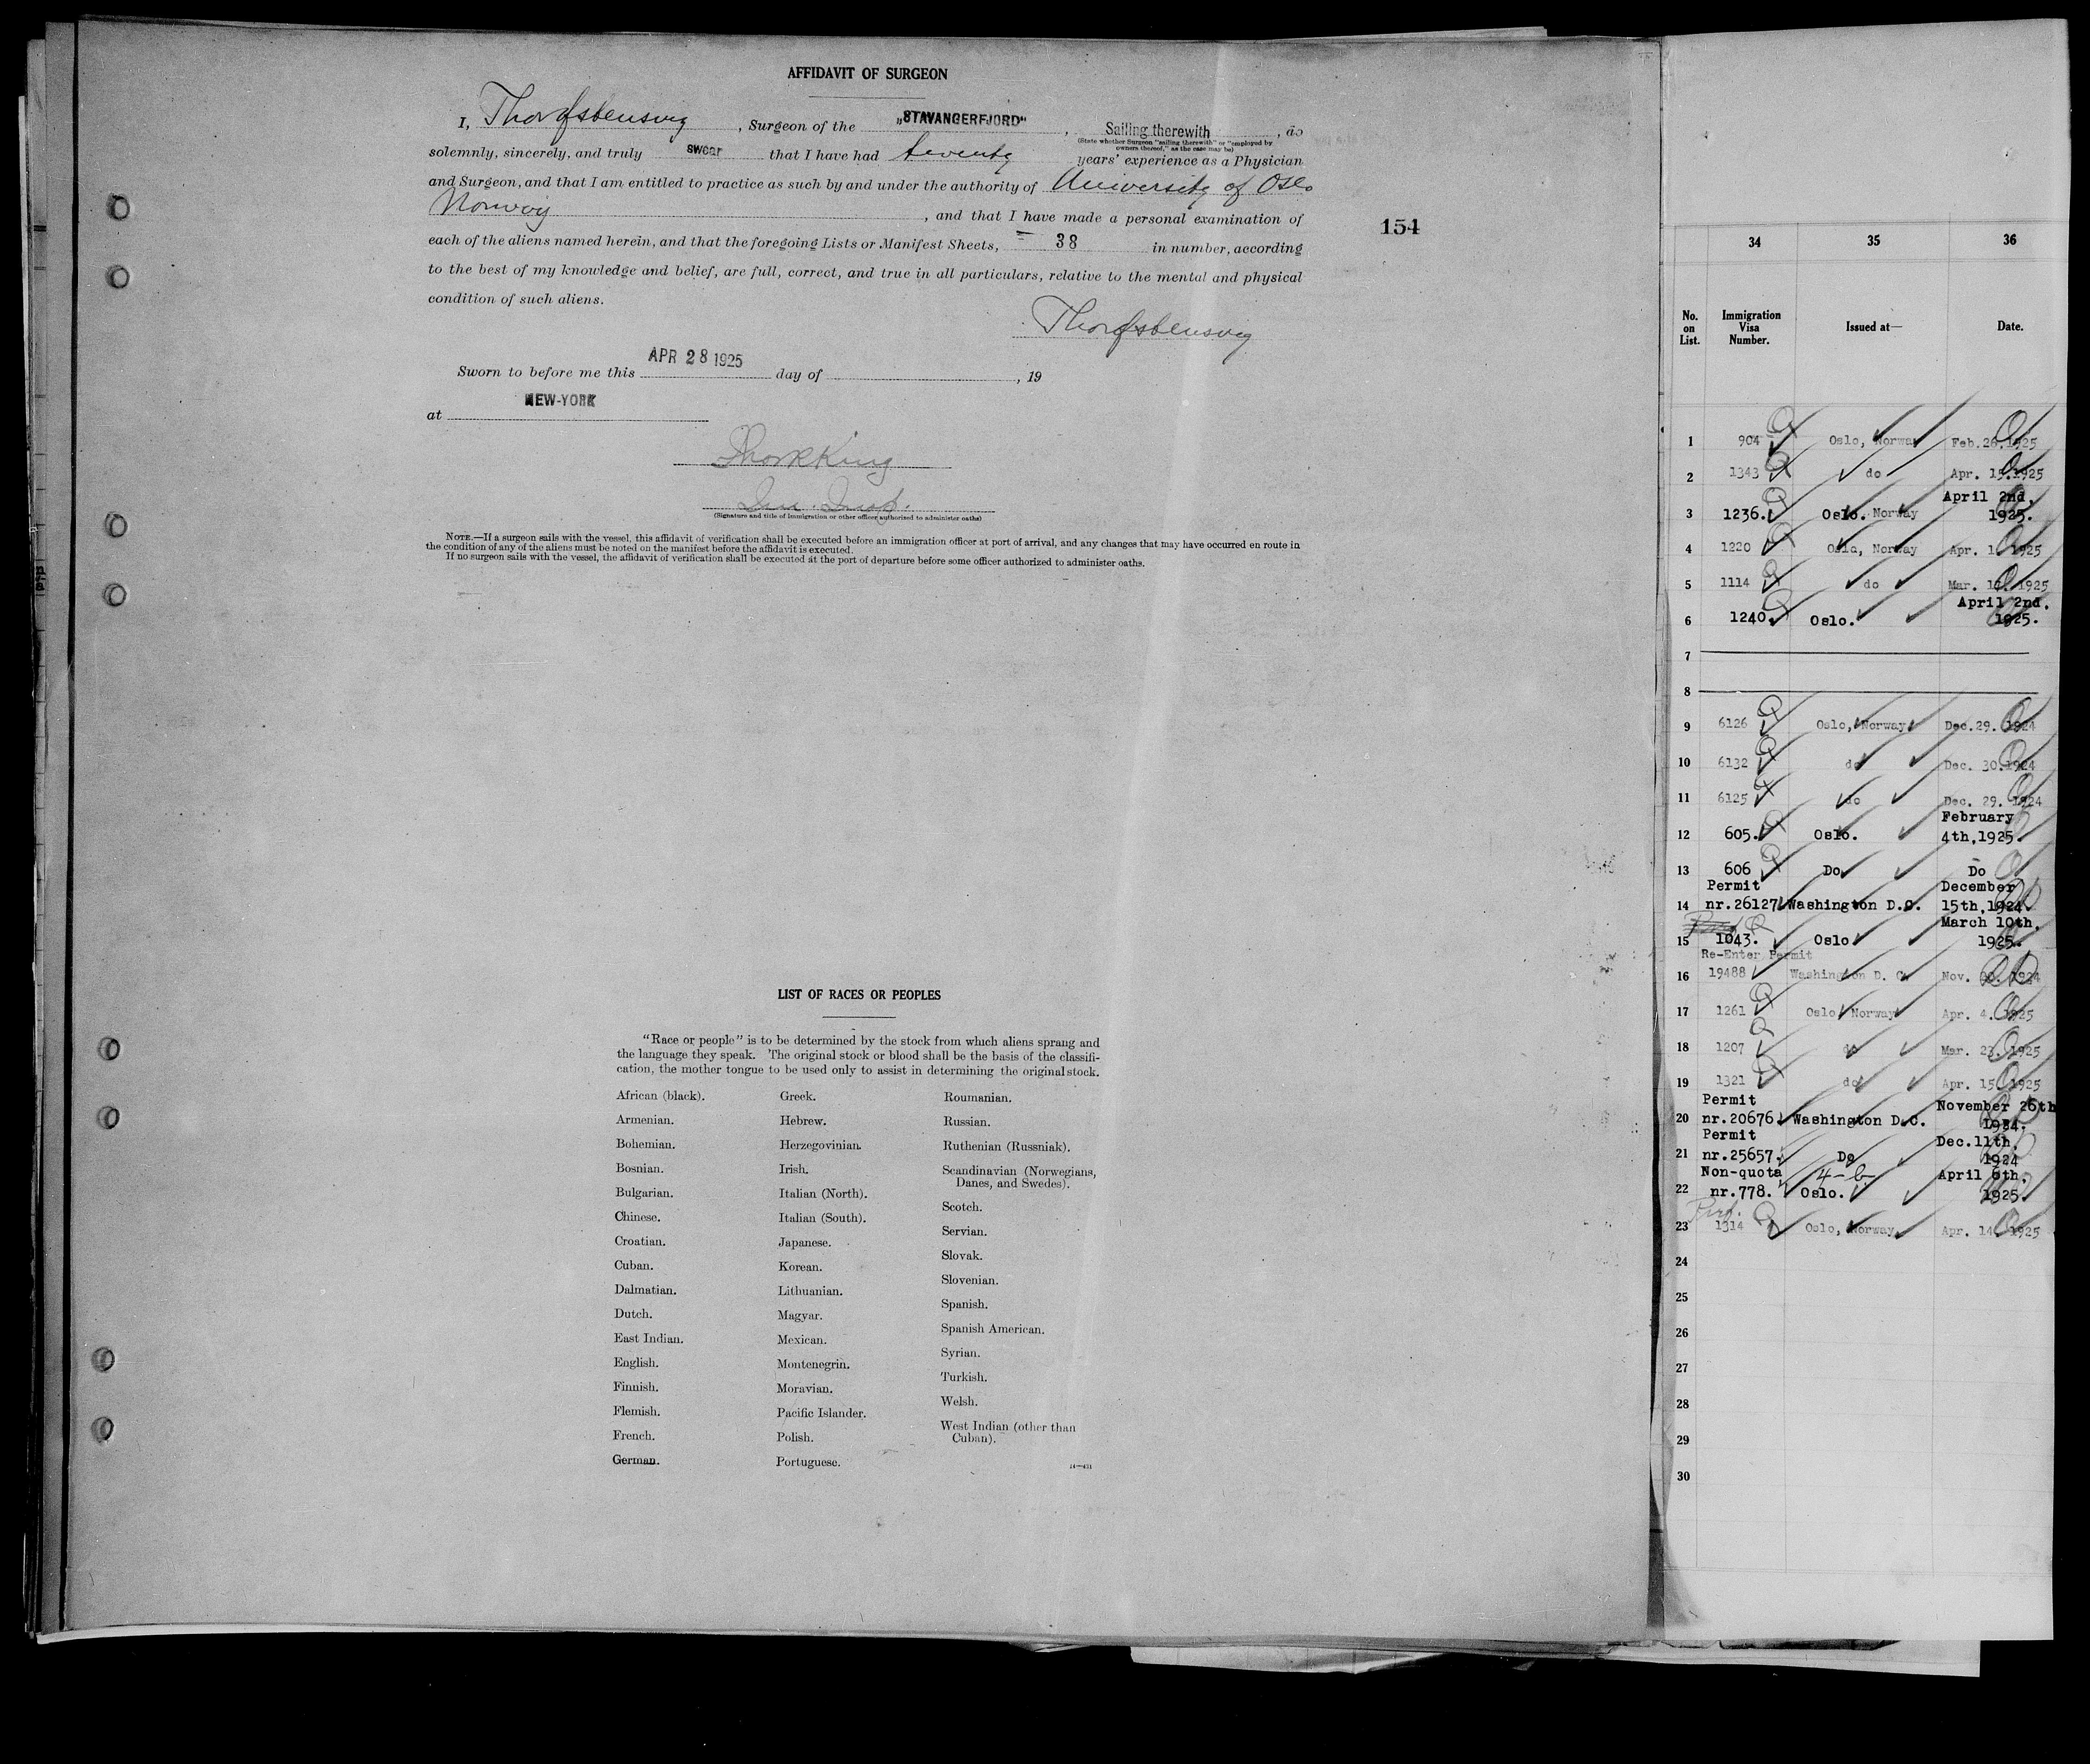 AFFIDAVIT OF SURGEON
I, , Surgeon of the „STAVANGERFJORD“, Sailing therewith, do
(State whether Surgeon "sailing therewith" or "employed by
owners thereof," as the case may be)
solemnly, sincerely, and truly swear that I have had twenty years' experience as a Physician
and Surgeon, and that I am entitled to practice as such by and under the authority of University of Oslo
Norway, and that I have made a personal examination of
each of the aliens named herein, and that the foregoing Lists or Manifest Sheets, 38 in number, according
to the best of my knowledge and belief, are full, correct, and true in all particulars, relative to the mental and physical
condition of such aliens.
154
Sworn to before me this APR 28 1925 day of , 19
at NEW-YORK
(Signature and title of immigration or other officer authorized to administer oaths)
NOTE.—If a surgeon sails with the vessel, this affidavit of verification shall be executed before an immigration officer at port of arrival, and any changes that may have occurred en route in
the condition of any of the aliens must be noted on the manifest before the affidavit is executed.
If no surgeon sails with the vessel, the affidavit of verification shall be executed at the port of departure before some officer authorized to administer oaths.
LIST OF RACES OR PEOPLES
"Race or people" is to be determined by the stock from which aliens sprang and
the language they speak. The original stock or blood shall be the basis of the classifi-
cation, the mother tongue to be used only to assist in determining the original stock.
African (black).
Armenian.
Bohemian.
Bosnian.
Bulgarian.
Chinese.
Croatian.
Cuban.
Dalmatian.
Dutch.
East Indian.
English.
Finnish.
Flemish.
French.
German.
Greek.
Hebrew.
Herzegovinian.
Irish.
Italian (North).
Italian (South).
Japanese.
Korean.
Lithuanian.
Magyar.
Mexican.
Montenegrin.
Moravian.
Pacific Islander.
Polish.
Portuguese.
Roumanian.
Russian.
Ruthenian (Russniak).
Scandinavian (Norwegians,
Danes, and Swedes).
Scotch.
Servian.
Slovak.
Slovenian.
Spanish.
Spanish American.
Syrian.
Turkish.
Welsh.
West Indian (other than
Cuban).
14—431
34 35 36
No. on List. Immigration Visa Number. Issued at— Date.
1 904 Oslo, Norway Feb. 1925
2 1343 do Apr. 15.1925
April 2nd,
3 1236. Oslo. Norway 1925.
4 1220 Oslo, Norway Apr. 1. 1925
5 1114 do Mar. 1925
April 2nd.
6 1240. Oslo. 1925.
7
8
9 6126 Oslo, Norway Dec.29. 1924
10 6132 do Dec. 30.1924
11 6125 do Dec. 29. 1924
February
12 605. Oslo. 4th,1925.
13 606 Do Do
Permit December
14 nr.26127 Washington D.C. 15th,1924.
March 10th,
15 1043. Oslo 1925.
Re-Enter Permit
16 19488 Washington D. C. Nov. 1924
17 1261 Oslo Norway Apr. 4. 1925
18 1207 do Mar. 23. 1925
19 1321 do Apr. 15. 1925
Permit November 26th
20 nr.20676 Washington D.C. 1924.
Permit Dec.11th,
21 nr.25657. Do 1924
Non-quota 4-b April 6th,
22 nr.778. Oslo. 1925.
23 1314 Oslo, Norway Apr. 14. 1925
24
25
26
27
28
29
30